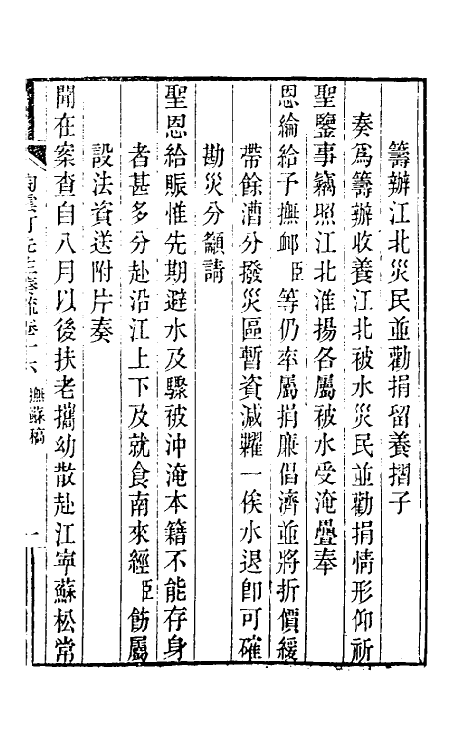 籌辦江北災民並勸捐留養摺子
奏爲籌辦收養江北被水災民並勸捐情形仰祈
聖鑒事竊照江北淮揚各屬被水受淹疊奉
恩綸給予撫卹臣等仍率屬捐廉倡濟並將折價緩
帶餘漕分撥災區暫資減糶一俟水退卽可確
勘災分籲請
聖恩給賑惟先期避水及驟被沖淹本籍不能存身
者甚多分赴沿江上下及就食南來經臣飭屬
設法資送附片奏
聞在案查自八月以後扶老攜幼散赴江寧蘇松常
陶雲汀先生奏疏卷十六 撫蘇稿 一